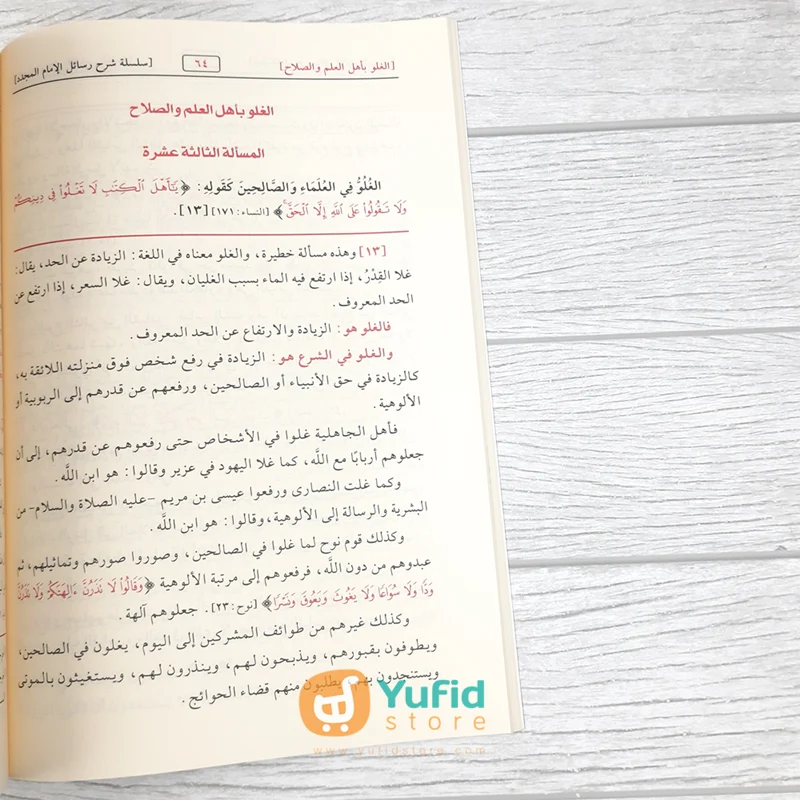 [الغلو بأهل العلم والصلاح] ٦٤ [سلسلة شرح رسائل الإمام المجدد]
الغلو بأهل العلم والصلاح
المسألة الثالثة عشرة
الغُلُوُّ فِي العُلَمَاءِ وَالصَّالِحِينَ كَقَولِهِ: ﴿يَٰٓأَهْلَ ٱلْكِتَٰبِ لَا تَغْلُوا۟ فِى دِينِكُمْ
وَلَا تَقُولُوا۟ عَلَى ٱللَّهِ إِلَّا ٱلْحَقَّ﴾ [النساء: ١٧١] [١٣].
[١٣] وهذه مسألة خطيرة، والغلو معناه في اللغة: الزيادة عن الحد، يقال:
غلا القِدْرُ، إذا ارتفع فيه الماء بسبب الغليان، ويقال: غلا السعر، إذا ارتفع عن
الحد المعروف.
فالغلو هو: الزيادة والارتفاع عن الحد المعروف.
والغلو في الشرع هو: الزيادة في رفع شخص فوق منزلته اللائقة به،
كالزيادة في حق الأنبياء أو الصالحين، ورفعهم عن قدرهم إلى الربوبية أو
الألوهية.
فأهل الجاهلية غلوا في الأشخاص حتى رفعوهم عن قدرهم، إلى أن
جعلوهم أربابًا مع اللَّه، كما غلا اليهود في عزير وقالوا: هو ابن اللَّه.
وكما غلت النصارى ورفعوا عيسى بن مريم -عليه الصلاة والسلام- من
البشرية والرسالة إلى الألوهية، وقالوا: هو ابن اللَّه.
وكذلك قوم نوح لما غلوا في الصالحين، وصوروا صورهم وتماثيلهم، ثم
عبدوهم من دون اللَّه، فرفعوهم إلى مرتبة الألوهية ﴿وَقَالُوا۟ لَا تَذَرُنَّ ءَالِهَتَكُمْ وَلَا تَذَرُنَّ
وَدًّا وَلَا سُوَاعًا وَلَا يَغُوثَ وَيَعُوقَ وَنَسْرًا﴾ [نوح: ٢٣]. جعلوهم آلهة.
وكذلك غيرهم من طوائف المشركين إلى اليوم، يغلون في الصالحين،
ويطوفون بقبورهم، ويذبحون لهم، وينذرون لهم، ويستغيثون بالموتى
ويستنجدون بهم، يطلبون منهم قضاء الحوائج.
Yufid
store
www.yufidstore.com